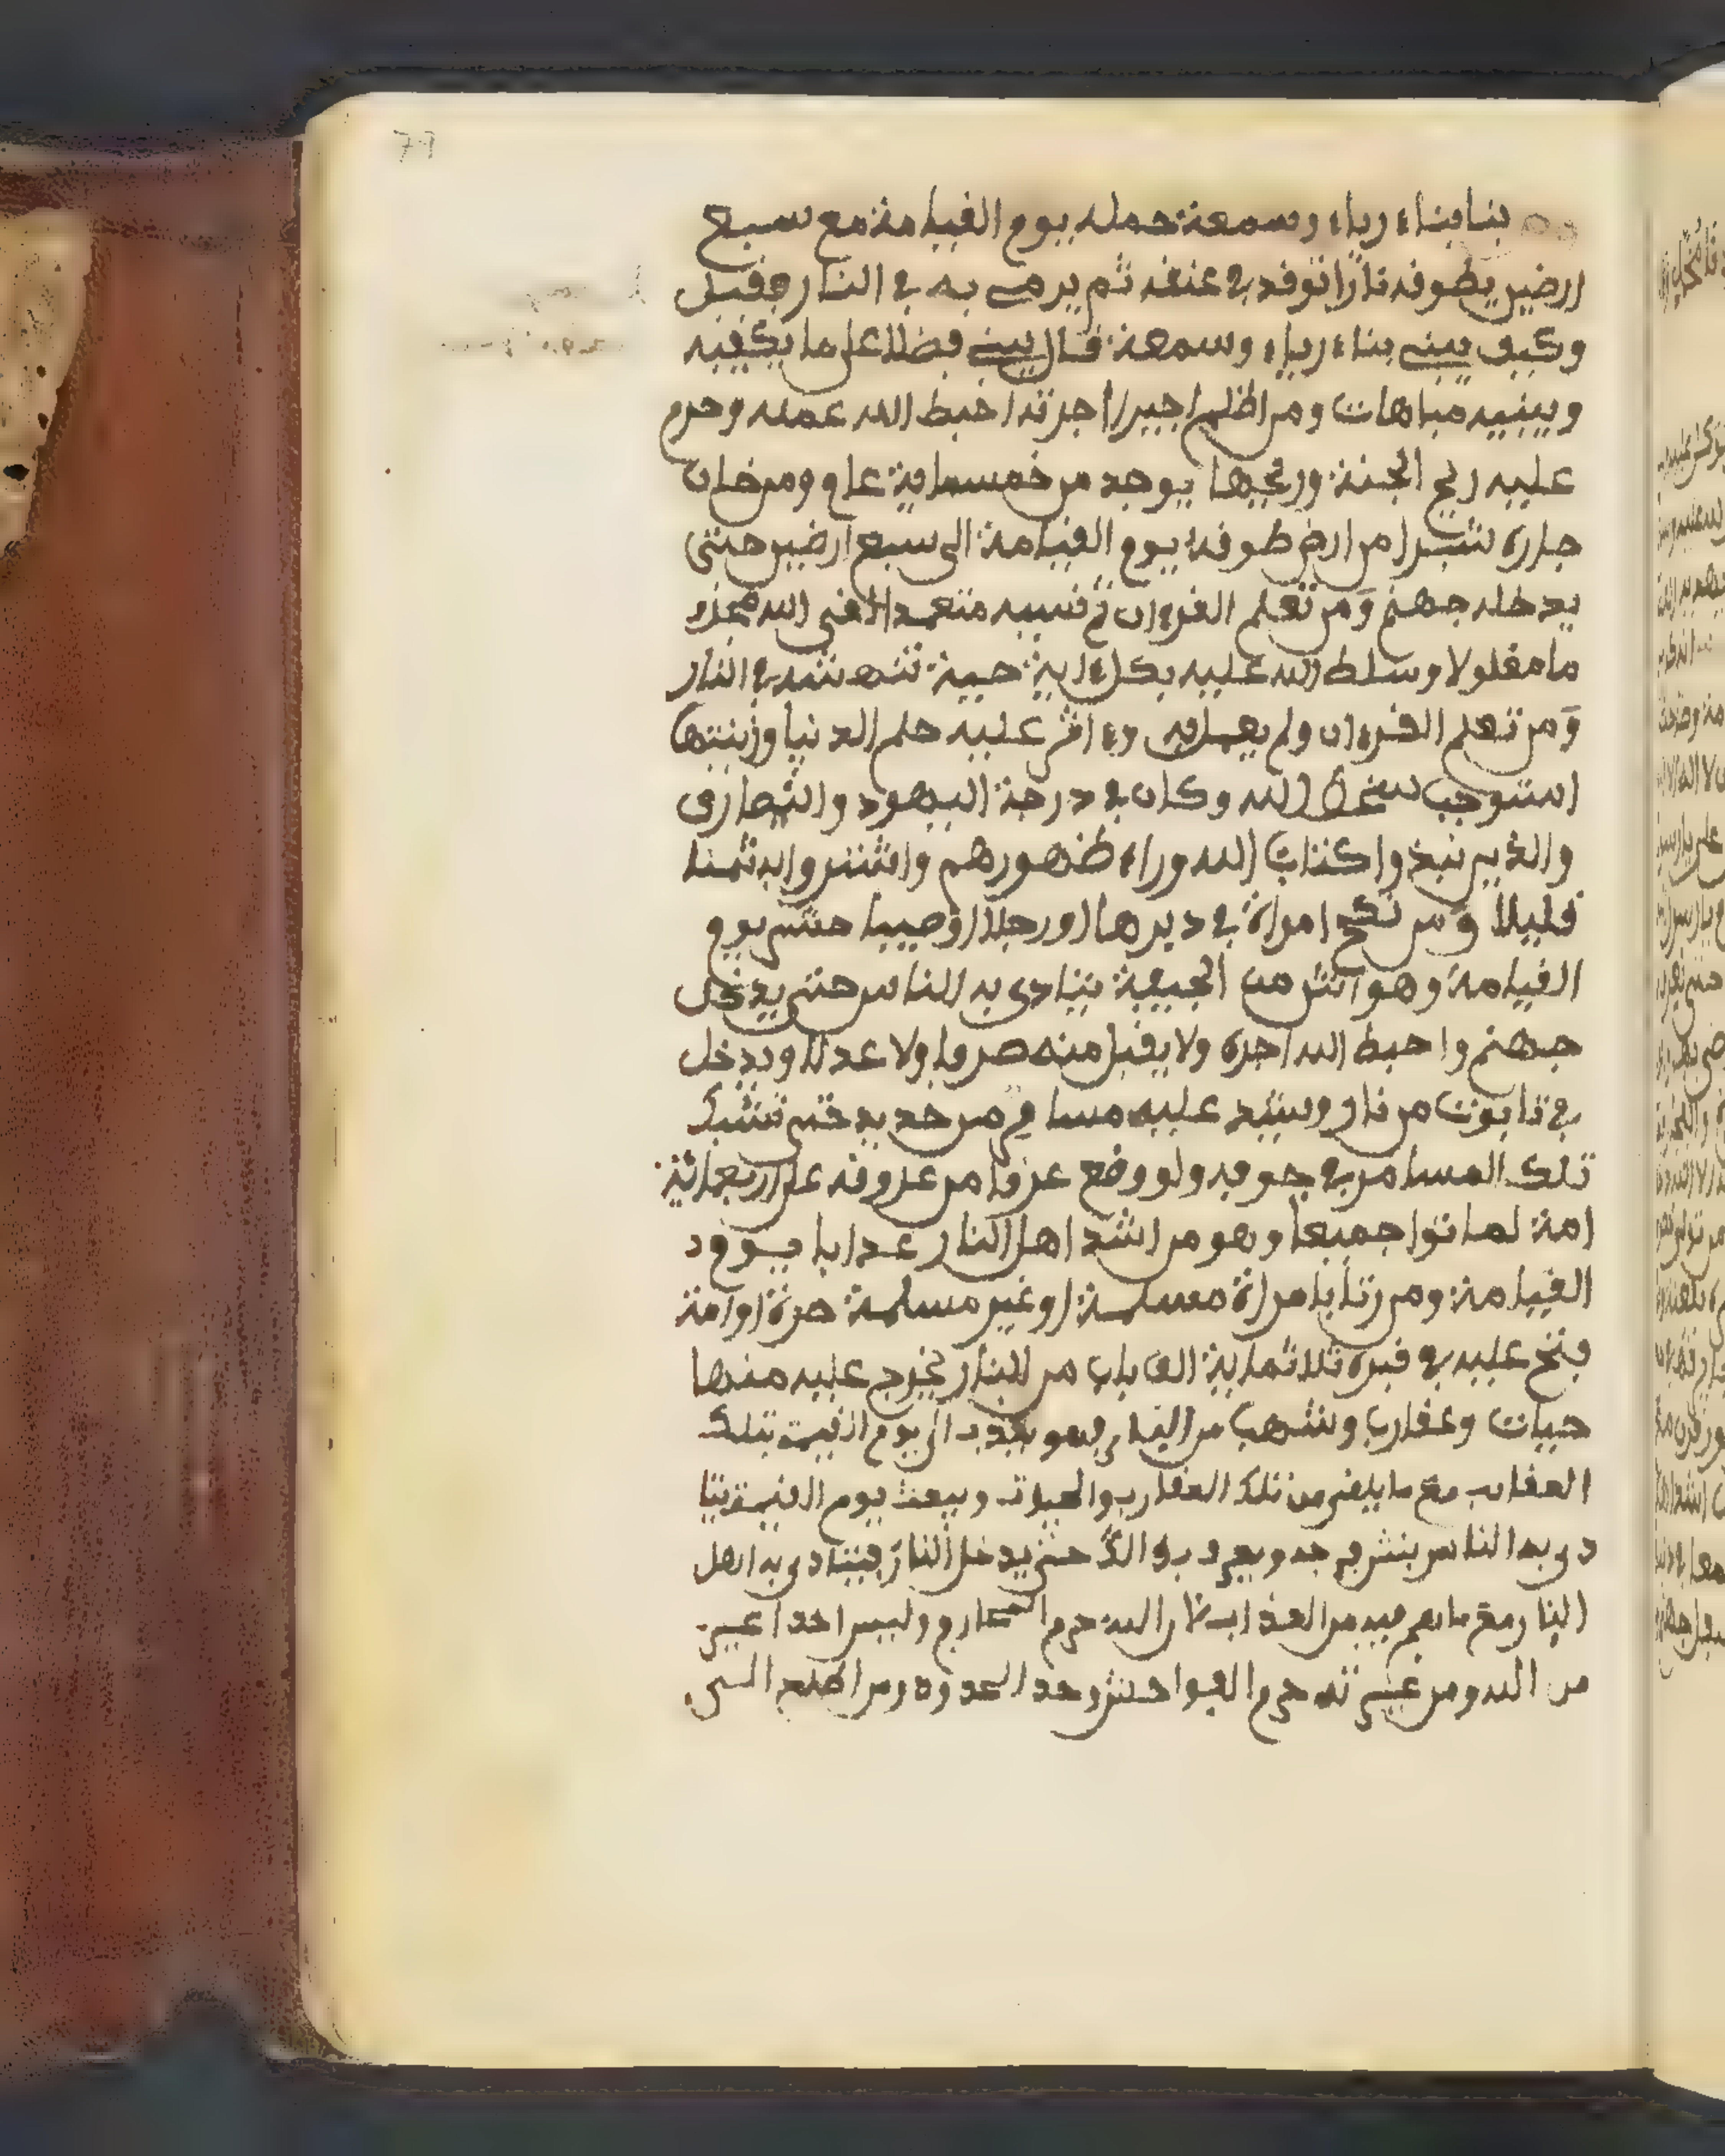 79
بنا بناء رياء وسمعة حمله يوم القيامة مع سبع
ارضين يطوقه نارا توقد في عنقه ثم يرمى به في النار فقيل
وكيف يبني بناء رياء وسمعة قال يبني فضلا على ما يكفيه
ويبنيه مباهات ومن اظلم اجيرا اجرته احبط الله عمله وحرم
عليه ريح الجنة وريحها يوجد من خمسماية عام ومن خان
جاره شبرا من ارض طوقه يوم القيامة الى سبع ارضين حتى
يدخله جهنم ومن تعلم القرءان ثم نسيه متعمدا لقي الله مجذو
ما مغلولا وسلط الله عليه بكل ءاية حية تنهشه في النار
ومن تعلم القرءان ولم يعمل به وءاثر عليه حلم الدنيا وزينتها
استوجب سخط الله وكان في درجة اليهود والنصارى
والذين نبذوا كتاب الله وراء ظهورهم واشتروا به ثمنا
قليلا ومن نكح امراة في دبرها او رجلا او صبيا حشر يوم
القيامة وهو انتن من الجيفة يتادى به الناس حتى يدخل
جهنم واحبط الله اجره ولا يقبل منه صرفا ولا عدلا ويدخل
في تابوت من نار ويشد عليه مسامر من حديد حتى تشبك
تلك المسامر في جوفه ولو وقع عرقا من عروقه على اربعمائة
امة لماتوا جميعا وهو من اشد اهل النار عذابا يوم
القيامة ومن زنا بامراة مسلمة او غير مسلمة حرة او امة
فتح عليه في قبره ثلاثماية الف باب من النار يخرج عليه منها
حيات وعقارب وشهب من النار فهو يعذب الى يوم القيمة بتلك
العقاب مع ما يلقى من تلك العقارب والحيوت ويبعث يوم القيمة يتا
دى به الناس بنتن فرجه ويعرف بذالك حتى يدخل النار فيتادى به اهل
النار مع ما هم فيه من العذاب لان الله حرم المحارم وليس احدا اغير
من الله ومن غيرته حرم الفواحش وحد الحدود ومن اطلع الى